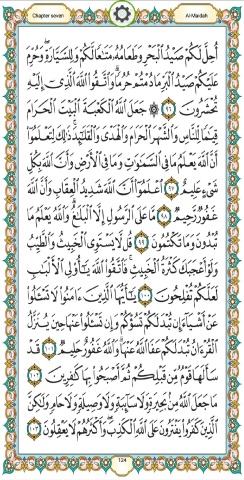 Chapter seven
Al-Maidah
أُحِلَّ لَكُمْ صَيْدُ ٱلْبَحْرِ وَطَعَامُهُۥ مَتَٰعًا لَّكُمْ وَلِلسَّيَّارَةِ ۖ وَحُرِّمَ
عَلَيْكُمْ صَيْدُ ٱلْبَرِّ مَا دُمْتُمْ حُرُمًا ۗ وَٱتَّقُوا۟ ٱللَّهَ ٱلَّذِىٓ إِلَيْهِ
تُحْشَرُونَ ٩٦ ۞ جَعَلَ ٱللَّهُ ٱلْكَعْبَةَ ٱلْبَيْتَ ٱلْحَرَامَ
قِيَٰمًا لِّلنَّاسِ وَٱلشَّهْرَ ٱلْحَرَامَ وَٱلْهَدْىَ وَٱلْقَلَٰٓئِدَ ۚ ذَٰلِكَ لِتَعْلَمُوٓا۟
أَنَّ ٱللَّهَ يَعْلَمُ مَا فِى ٱلسَّمَٰوَٰتِ وَمَا فِى ٱلْأَرْضِ وَأَنَّ ٱللَّهَ بِكُلِّ
شَىْءٍ عَلِيمٌ ٩٧ ٱعْلَمُوٓا۟ أَنَّ ٱللَّهَ شَدِيدُ ٱلْعِقَابِ وَأَنَّ ٱللَّهَ
غَفُورٌ رَّحِيمٌ ٩٨ مَّا عَلَى ٱلرَّسُولِ إِلَّا ٱلْبَلَٰغُ ۗ وَٱللَّهُ يَعْلَمُ مَا
تُبْدُونَ وَمَا تَكْتُمُونَ ٩٩ قُل لَّا يَسْتَوِى ٱلْخَبِيثُ وَٱلطَّيِّبُ
وَلَوْ أَعْجَبَكَ كَثْرَةُ ٱلْخَبِيثِ ۚ فَٱتَّقُوا۟ ٱللَّهَ يَٰٓأُو۟لِى ٱلْأَلْبَٰبِ
لَعَلَّكُمْ تُفْلِحُونَ ١٠٠ يَٰٓأَيُّهَا ٱلَّذِينَ ءَامَنُوا۟ لَا تَسْـَٔلُوا۟
عَنْ أَشْيَآءَ إِن تُبْدَ لَكُمْ تَسُؤْكُمْ وَإِن تَسْـَٔلُوا۟ عَنْهَا حِينَ يُنَزَّلُ
ٱلْقُرْءَانُ تُبْدَ لَكُمْ عَفَا ٱللَّهُ عَنْهَا ۗ وَٱللَّهُ غَفُورٌ حَلِيمٌ ١٠١ قَدْ
سَأَلَهَا قَوْمٌ مِّن قَبْلِكُمْ ثُمَّ أَصْبَحُوا۟ بِهَا كَٰفِرِينَ ١٠٢
مَا جَعَلَ ٱللَّهُ مِنۢ بَحِيرَةٍ وَلَا سَآئِبَةٍ وَلَا وَصِيلَةٍ وَلَا حَامٍ ۙ وَلَٰكِنَّ
ٱلَّذِينَ كَفَرُوا۟ يَفْتَرُونَ عَلَى ٱللَّهِ ٱلْكَذِبَ ۖ وَأَكْثَرُهُمْ لَا يَعْقِلُونَ ١٠٣
124